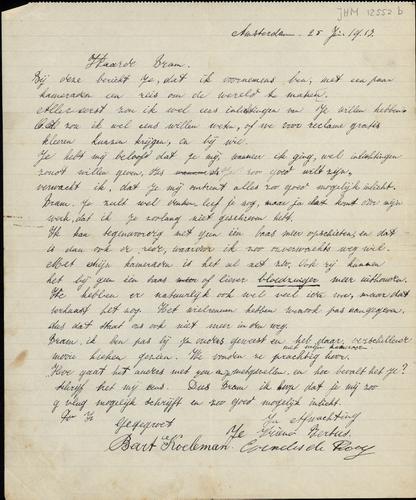 JHM 12552 b
Amsterdam. 25 19
Waarde Bram.
Bij deze bericht Je, dat ik voornemens ben, met een paar
kameraden een reis om de wereld te maken.
Allereerst zou ik wel eens inlichtingen van Je willen hebben.
zou ik wel eens willen weten, of we voor reclame gratis
kleeren kunnen krijgen, en bij wie.
Je hebt mij beloofd dat je mij, wanneer ik ging, wel inlichtingen
zoudt willen geven, dus Je zoo goed wilt zijn,
verwacht ik, dat Je mij omtrent alles zoo goed mogelijk inlicht.
Bram. Je zult wel denken leef je nog, maar ja dat komt door mijn
werk, dat ik je zoolang niet geschreven heb.
Ik kan tegenwoordig met geen een baas meer opschieten, en dat
is dan ook de reden, waarom ik zoo onverwachts weg wil.
Met mijn kameraden is het al net zoo. Ook zij kunnen
het bij geen een baas of liever bloedzuiger meer uithouden.
We hebben er natuurlijk ook wel veel voor over, maar dat
verhaast het nog. Het wielrennen hebben we ook aangegeven,
dus dat staat ons ook niet meer in den weg.
Bram, ik ben pas bij je ouders geweest en heb daar, verscheidene
met mijn kameraad
mooie kieken gezien. We vonden ze prachtig hoor.
Hoe gaat het anders met jou en, en hoe bevalt het je?
Schrijf het mij eens. Dus Bram ik hoop dat je mij zoo
vlug mogelijk schrijft en zoo goed mogelijk inlicht.
In Afwachting
Gegroet
Je Vriend
Bart Koeleman. Cornelis de Rooy